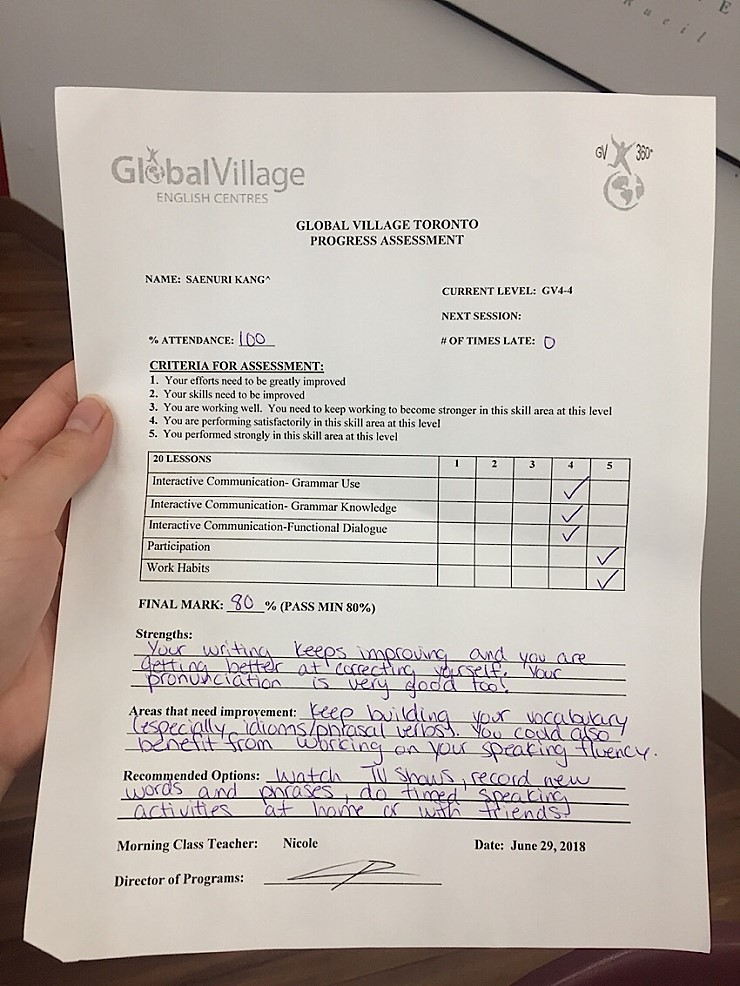 E
Rucil
GlobalVillage
ENGLISH CENTRES
GV 360°
GLOBAL VILLAGE TORONTO
PROGRESS ASSESSMENT
NAME: SAENURI KANG^
CURRENT LEVEL: GV4-4
NEXT SESSION:
% ATTENDANCE: 100
# OF TIMES LATE: 0
CRITERIA FOR ASSESSMENT:
1. Your efforts need to be greatly improved
2. Your skills need to be improved
3. You are working well. You need to keep working to become stronger in this skill area at this level
4. You are performing satisfactorily in this skill area at this level
5. You performed strongly in this skill area at this level
20 LESSONS 1 2 3 4 5
Interactive Communication- Grammar Use ✓
Interactive Communication- Grammar Knowledge ✓
Interactive Communication-Functional Dialogue ✓
Participation ✓
Work Habits ✓
FINAL MARK: 80 % (PASS MIN 80%)
Strengths:
Your writing keeps improving and you are
getting better at correcting yourself. Your
pronunciation is very good too!
Areas that need improvement: Keep building your vocabulary
(especially idioms/phrasal verbs). You could also
benefit from working on your speaking fluency.
Recommended Options: Watch TV shows, record new
words and phrases, do timed speaking
activities at home or with friends!
Morning Class Teacher: Nicole
Date: June 29, 2018
Director of Programs: